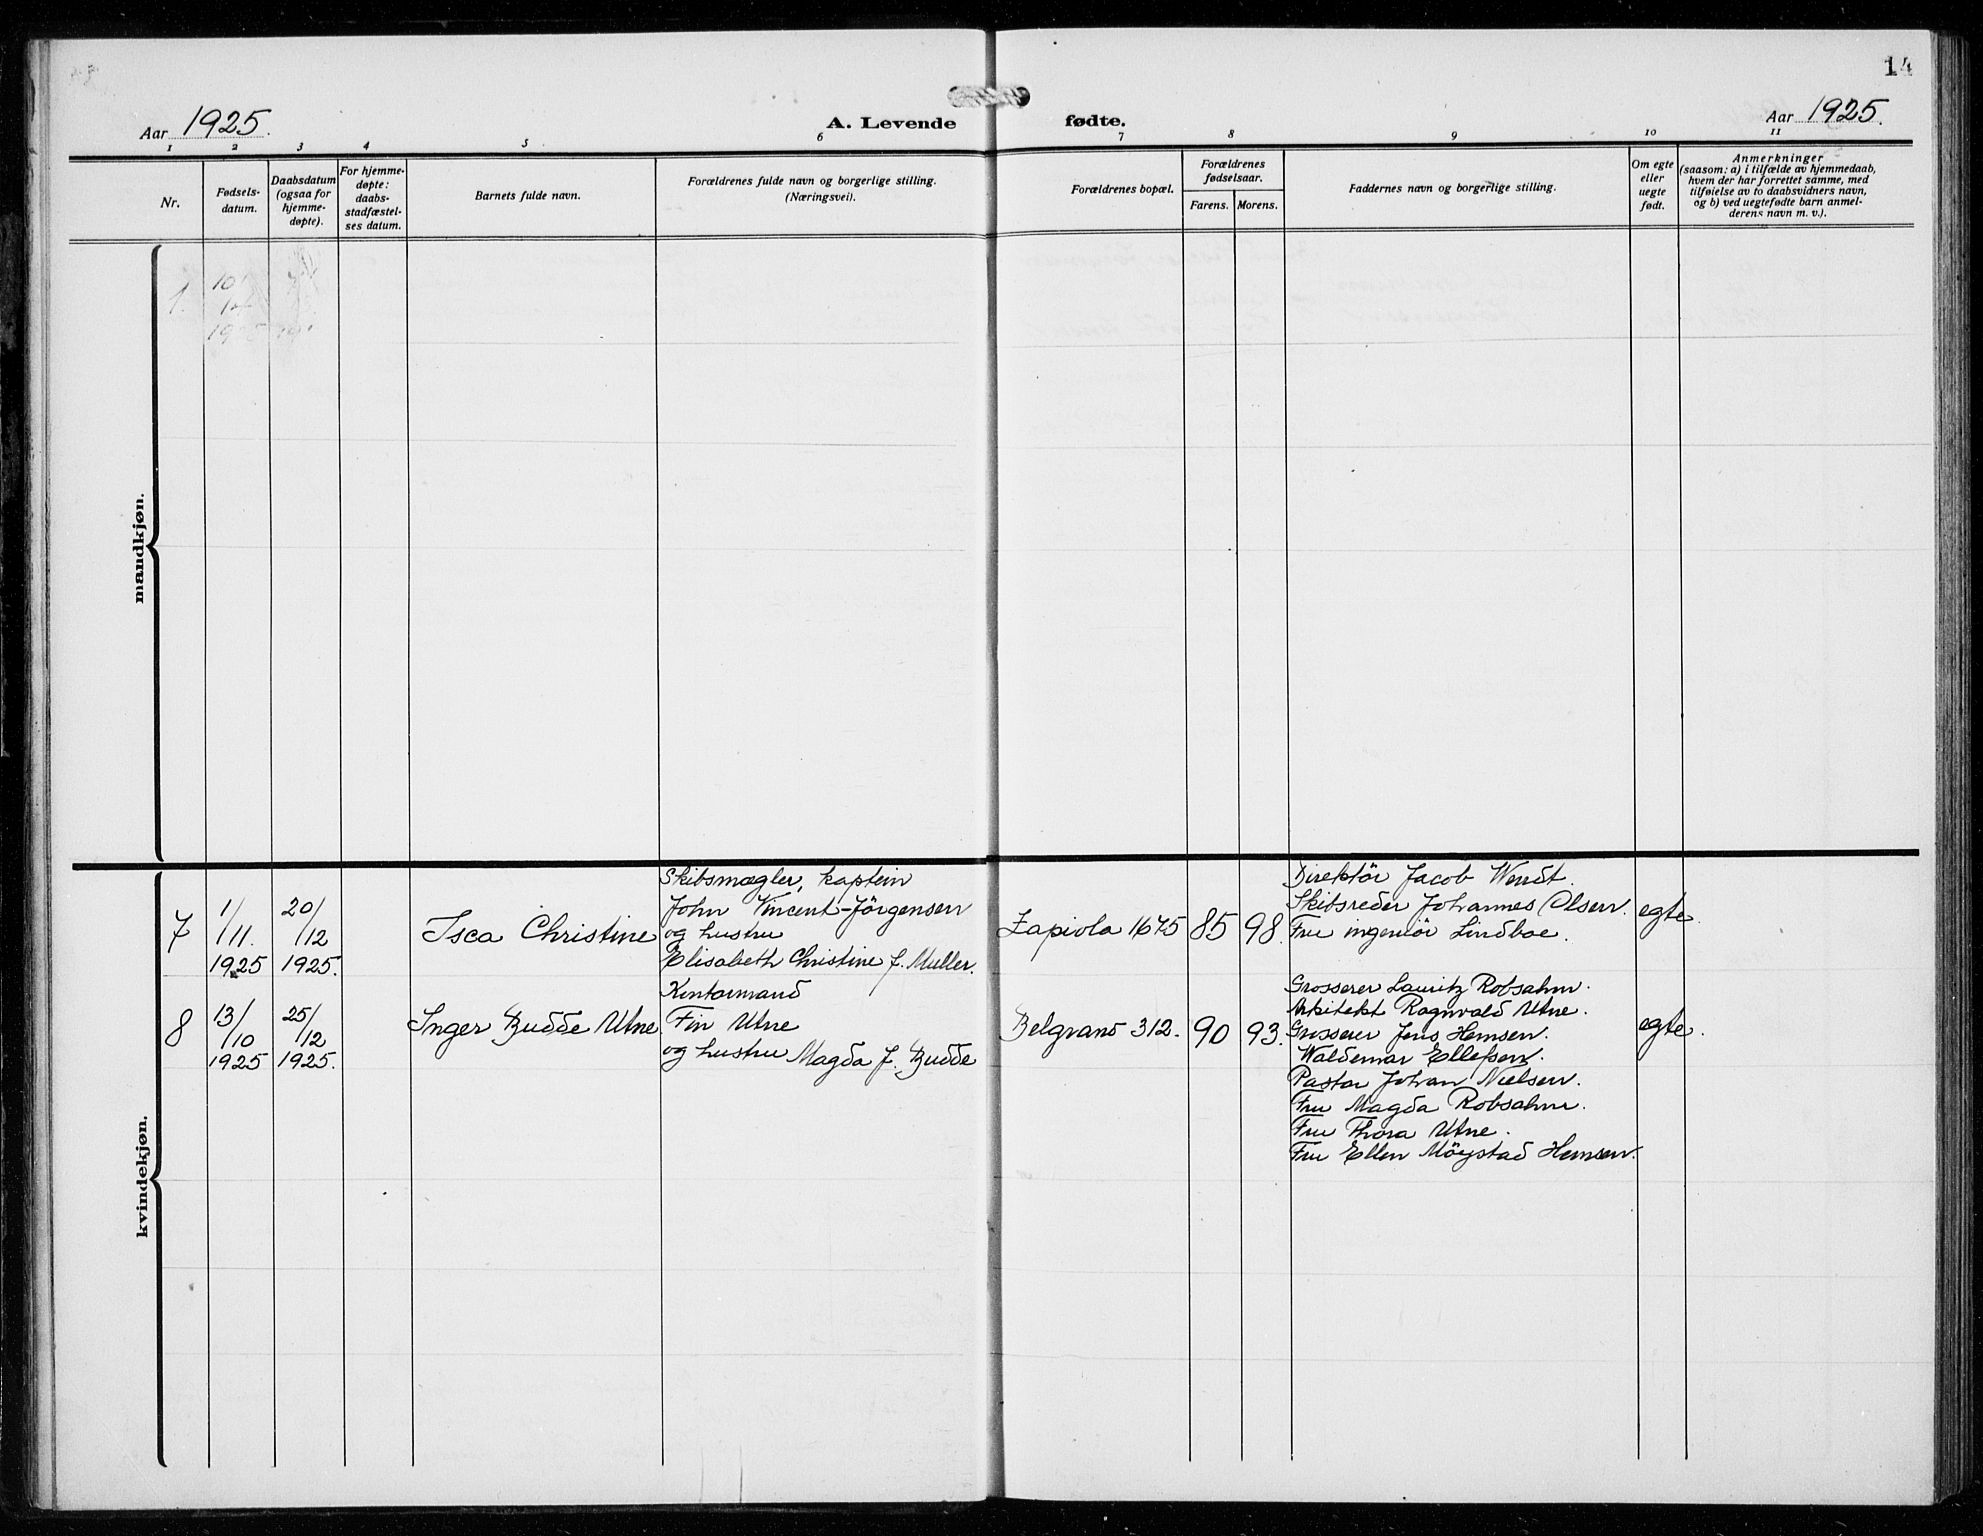 14
Aar 1925.
A. Levende fødte.
Aar 1925.
1 2 3 4 5 6 7 8 9 10 11
Nr.
Fødsels-
datum.
Daabsdatum
(ogsaa for
hjemme-
døpte).
For hjemme-
døpte:
daabs-
stadfæstel-
ses datum.
Barnets fulde navn.
Forældrenes fulde navn og borgerlige stilling.
(Næringsvei).
Forældrenes bopæl.
Forældrenes
fødselsaar.
Farens. Morens.
Faddernes navn og borgerlige stilling.
Om egte
eller
uegte
født.
Anmerkninger
(saasom: a) i tilfælde av hjemmedaab,
hvem der har forrettet samme, med
tilføielse av to daabsvidners navn,
og b) ved uegtefødte barn anmel-
derens navn m. v.).
mandkjøn.
1.
10
1925
kvindekjøn.
7
1/
/11.
1925
20/
/12
1925.
Isca Christine
Skibsmægler, kaptein
John Vincent-Jörgensen
og hustru
Elisabeth Christine f. Müller.
Zapiola 1675
85
98.
Direktör Jacob Wendt.
Skibsreder Johannes Olsen.
Fru ingeniör Lindboe.
egte.
8
13/
/10
1925
25/
/12
1925.
Inger Budde Utne
Kontormand
Fin Utne
og hustru Magda f. Budde
Belgrano 312.
90
93.
Grosserer Lauritz Robsahm.
Arkitekt Ragnvald Utne.
Grosserer Jens Hemsen.
Waldemar Ellefsen.
Pastor Johan Nielsen.
Fru Magda Robsahm.
Fru Thora Utne.
Fru Ellen Möystad Hemsen.
egte.